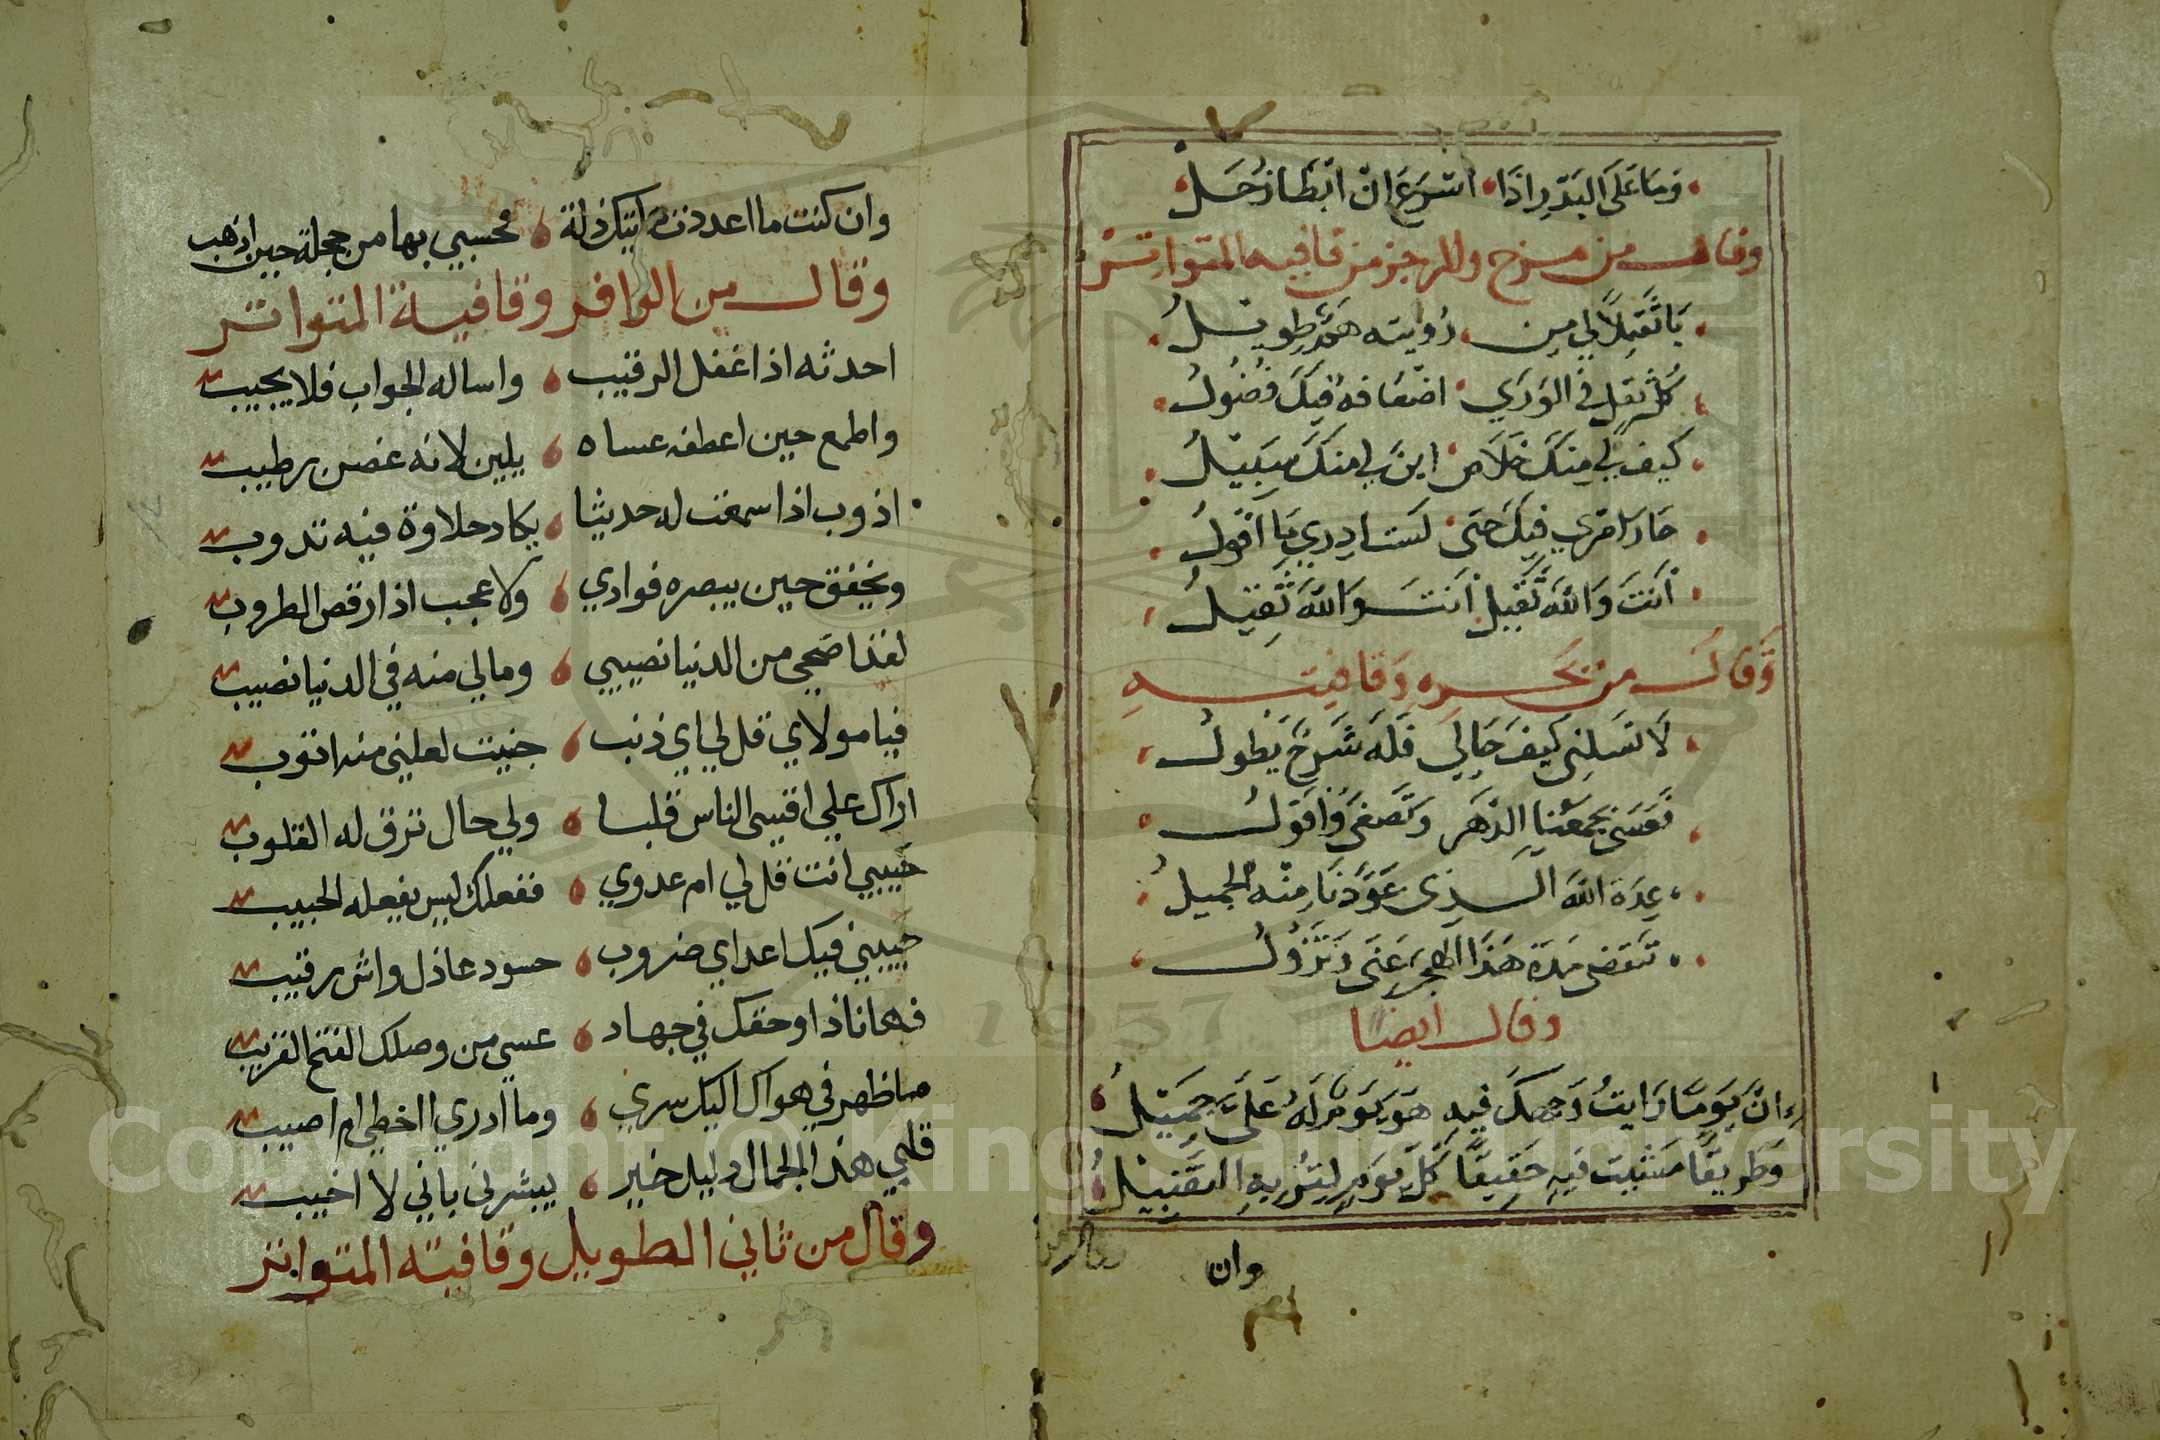 وما على البدر اذا اسرع ان ابطا زحل
وقال من مزج والرجز من قافيه المتواتر
يا ثقيلا لي من رؤيته هم طويل
كل ثقل في الورى اضعافه فيك فضول
كيف لي منك خلاص اين لي منك سبيل
حار امري فيك حتى لست ادري ما اقول
انت والله ثقيل انت والله ثقيل
وقال من بحره وقافيته
لا تسلني كيف حالي فله شرح يطول
فعسى يجمعنا الدهر وتصغى واقول
عدة الله الذي عودنا منه الجميل
تنقضى مدة هذا الهجر عنى وتزول
وقال ايضا
ان يوما رايت وجهك فيه هو يوم له على جميل
وطريقا مشيت فيه حقيقا كل يوم لتربه التقبيل
وان
وان كنت ما اعددت اتيك ذلة فحسبي بها من خجلة حين اذهب
وقال من الوافر وقافية المتواتر
احدثه اذا غفل الرقيب واساله الجواب فلا يجيب
واطمع حين اعطفه عساه يلين لانه غصن رطيب
اذوب اذا سمعت له حديثا يكاد حلاوة فيه تذوب
ويخفق حين يبصره فوادي ولا عجب اذا رقص الطروب
لقد اضحي من الدنيا نصيبي ومالي منه في الدنيا نصيب
فيا مولاي قل لي اي ذنب جنيت لعلني منه اتوب
اراك علي اقسى الناس قلبا ولي حال ترق له القلوب
حبيبي انت قل لي ام عدوي ففعلك ليس يفعله الحبيب
حبيبي فيك اعداي ضروب حسود عاذل واش رقيب
فها انا ذا وحقك في جهاد عسي من وصلك الفتح القريب
ساظهر في هواك اليك سري وما ادري ااخطي ام اصيب
قلبي هذا الجمال دليل خير يبشرني باني لا اخيب
وقال من ثاني الطويل وقافيته المتواتر
Copyright © King Saud University
1957